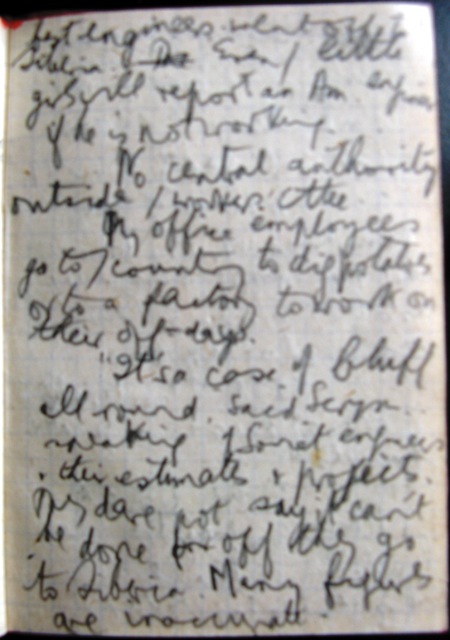 best engineers
Siberia. Even / little
girl will report an Am. engineer
if he is not working.
No central authority
outside / workers' cttee
My office employees
go to / country to dig potatoes
or to a factory to work on
their off-days.
"It's a case of bluff
all round. said
speaking of Soviet engineers
their estimates + projects.
They dare not say it can't
be done for off they go
to Siberia. Many figures
are inaccurate.